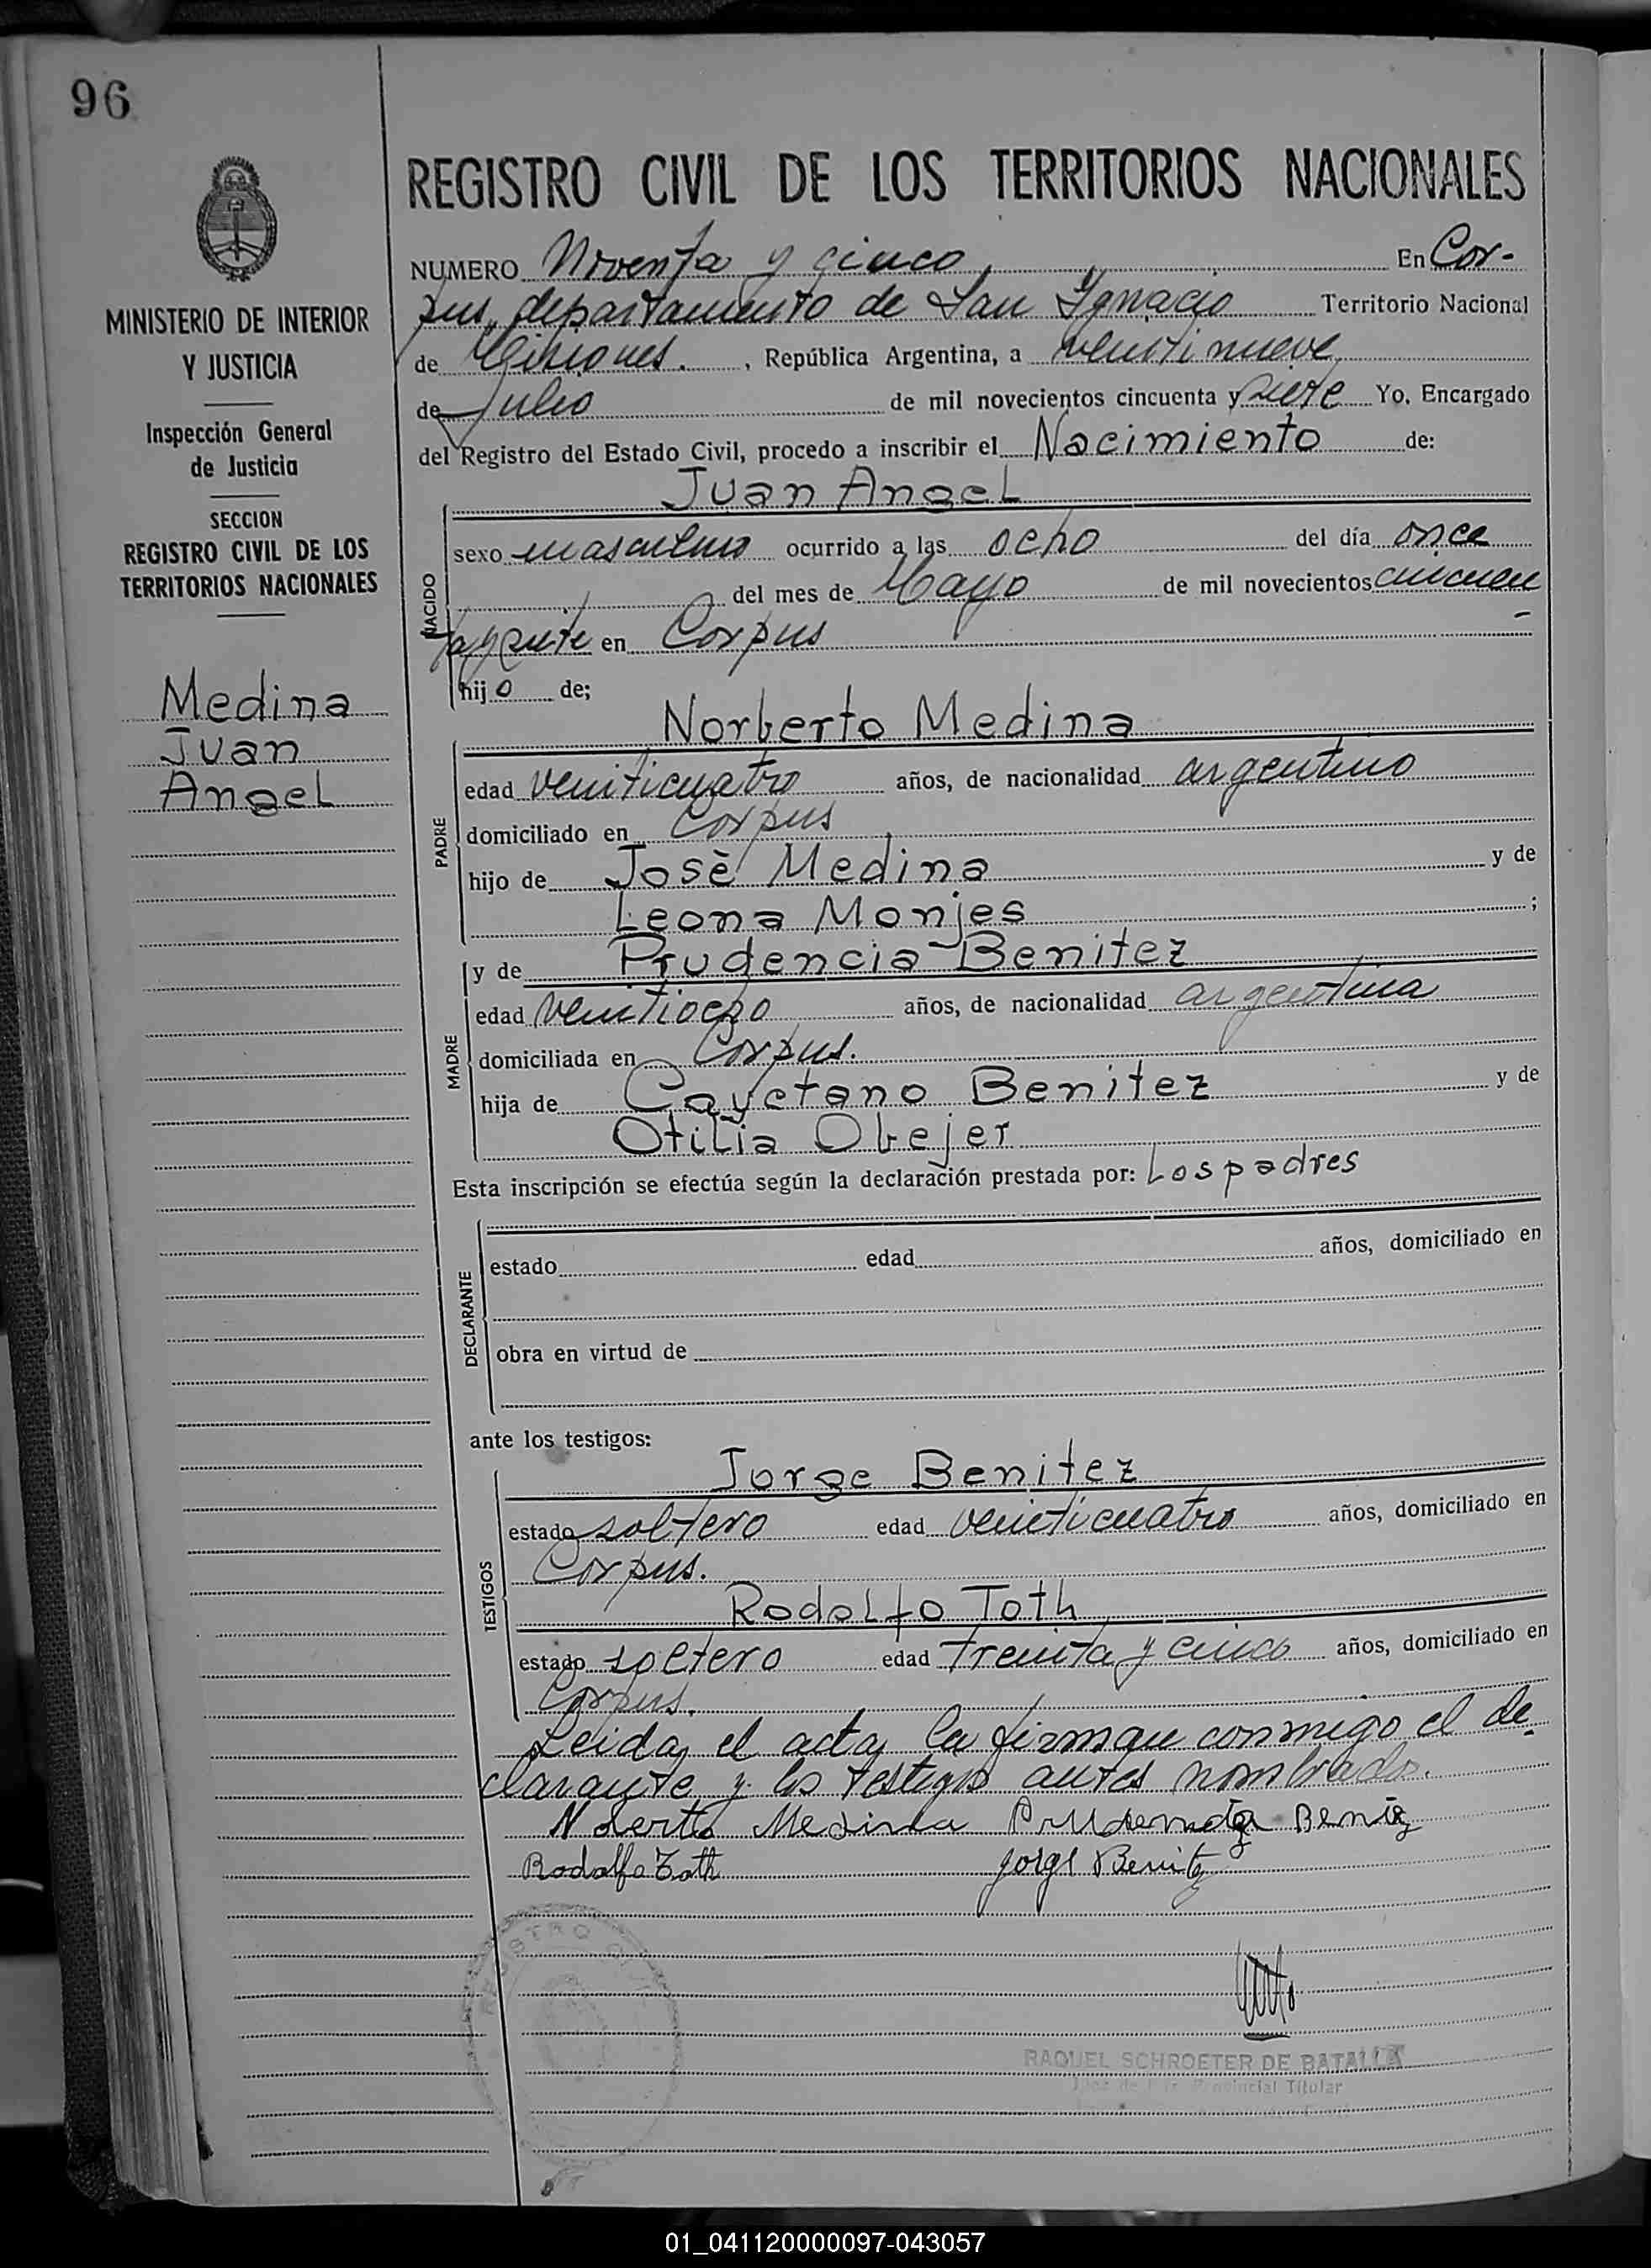 96
REGISTRO CIVIL DE LOS TERRITORIOS NACIONALES
MINISTERIO DE INTERIOR
Y JUSTICIA
Inspección General
de Justicia
SECCION
REGISTRO CIVIL DE LOS
TERRITORIOS NACIONALES
Medina
Juan
Angel
NUMERO Noventa y cinco, En Cor-
pus, departamento de San Ignacio Territorio Nacional
de Misiones. , República Argentina, a veintinueve
de Julio de mil novecientos cincuenta y siete Yo, Encargado
del Registro del Estado Civil, procedo a inscribir el Nacimiento de:
Juan Angel
NACIDO
sexo masculino ocurrido a las ocho del día once
del mes de Mayo de mil novecientos cincuen
ta y siete en Corpus
hijo de;
Norberto Medina
PADRE
edad veinticuatro años, de nacionalidad argentino
domiciliado en Corpus
hijo de José Medina y de
Leona Monjes ;
y de Prudencia Benitez
MADRE
edad veintiocho años, de nacionalidad argentina
domiciliada en Corpus.
hija de Cayetano Benitez y de
Otilia Obejer
Esta inscripción se efectúa según la declaración prestada por: Los padres
DECLARANTE
estado edad años, domiciliado en
obra en virtud de
ante los testigos:
Jorge Benitez
TESTIGOS
estado soltero edad veinticuatro años, domiciliado en
Corpus.
Rodolfo Toth
estado soltero edad treinta y cinco años, domiciliado en
Corpus.
Leida el acta la firman conmigo el de-
clarante y los testigos antes nombrados.
Medina
Rodolfo Toth Jorge
RAQUEL SCHROETER DE BATALLA
Titular
01_041120000097-043057